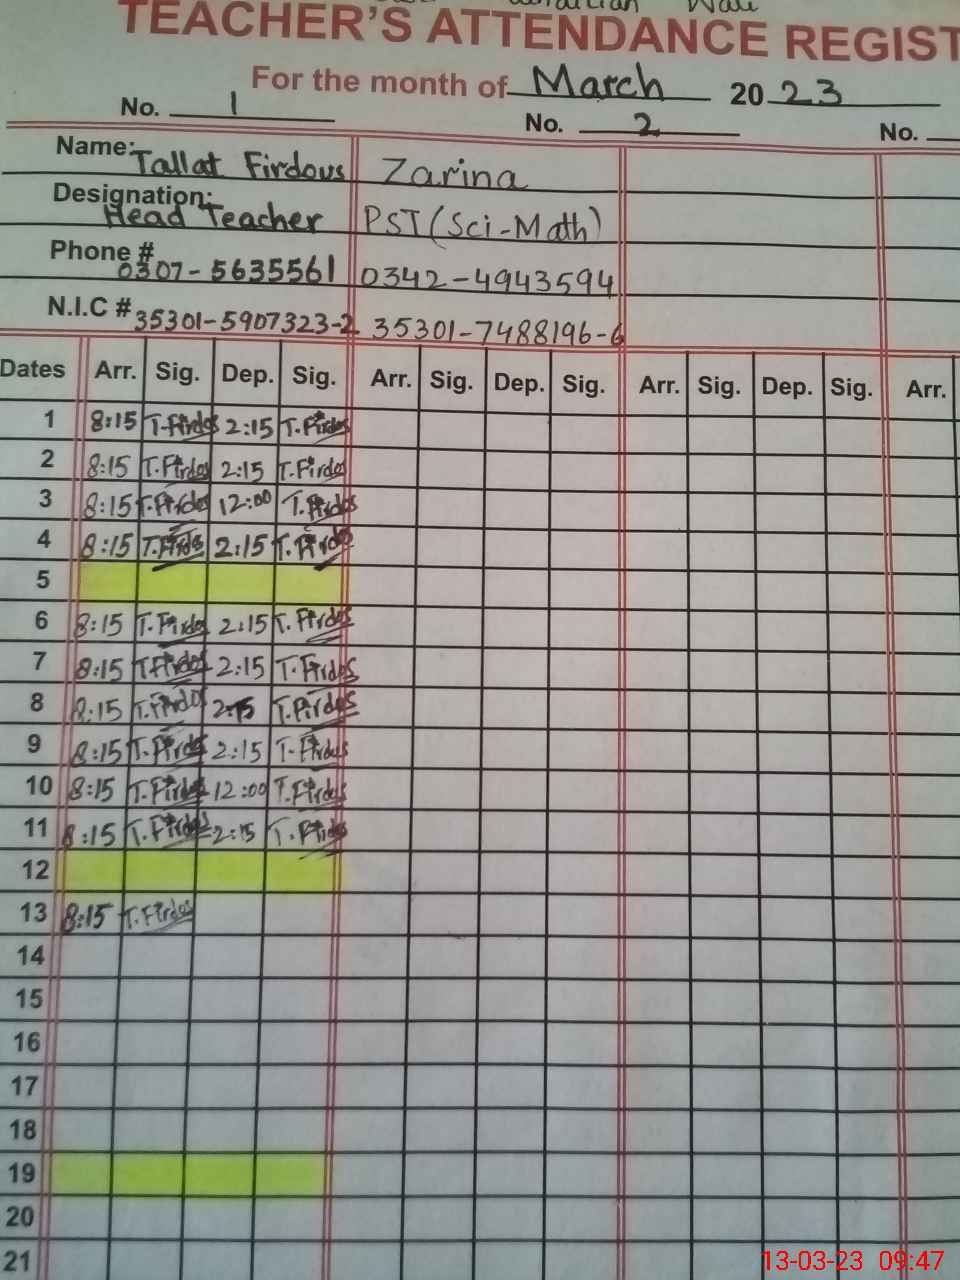 TEACHER'S ATTENDANCE REGIST
For the month of March 2023
No. 1 No. 2 No.
Name: Tallat Firdous Zarina
Designation: Head Teacher PST (Sci-Math)
Phone # 0307-5635561 0342-4943594
N.I.C # 35301-5907323-2 35301-7488196-6
Dates Arr. Sig. Dep. Sig. Arr. Sig. Dep. Sig. Arr. Sig. Dep. Sig. Arr.
1 8:15 T.Firdos 2:15 T.Firdos
2 8:15 T.Firdos 2:15 T.Firdos
3 8:15 T.Firdos 12:00 T.Firdos
4 8:15 T.Firdos 2:15 T.Firdos
5
6 8:15 T.Firdos 2:15 T.Firdos
7 8:15 T.Firdos 2:15 T.Firdos
8 8:15 T.Firdos 2:15 T.Firdos
9 8:15 T.Firdos 2:15 T.Firdos
10 8:15 T.Firdos 12:00 T.Firdos
11 8:15 T.Firdos 2:15 T.Firdos
12
13 8:15 T.Firdos
14
15
16
17
18
19
20
21
13-03-23 09:47